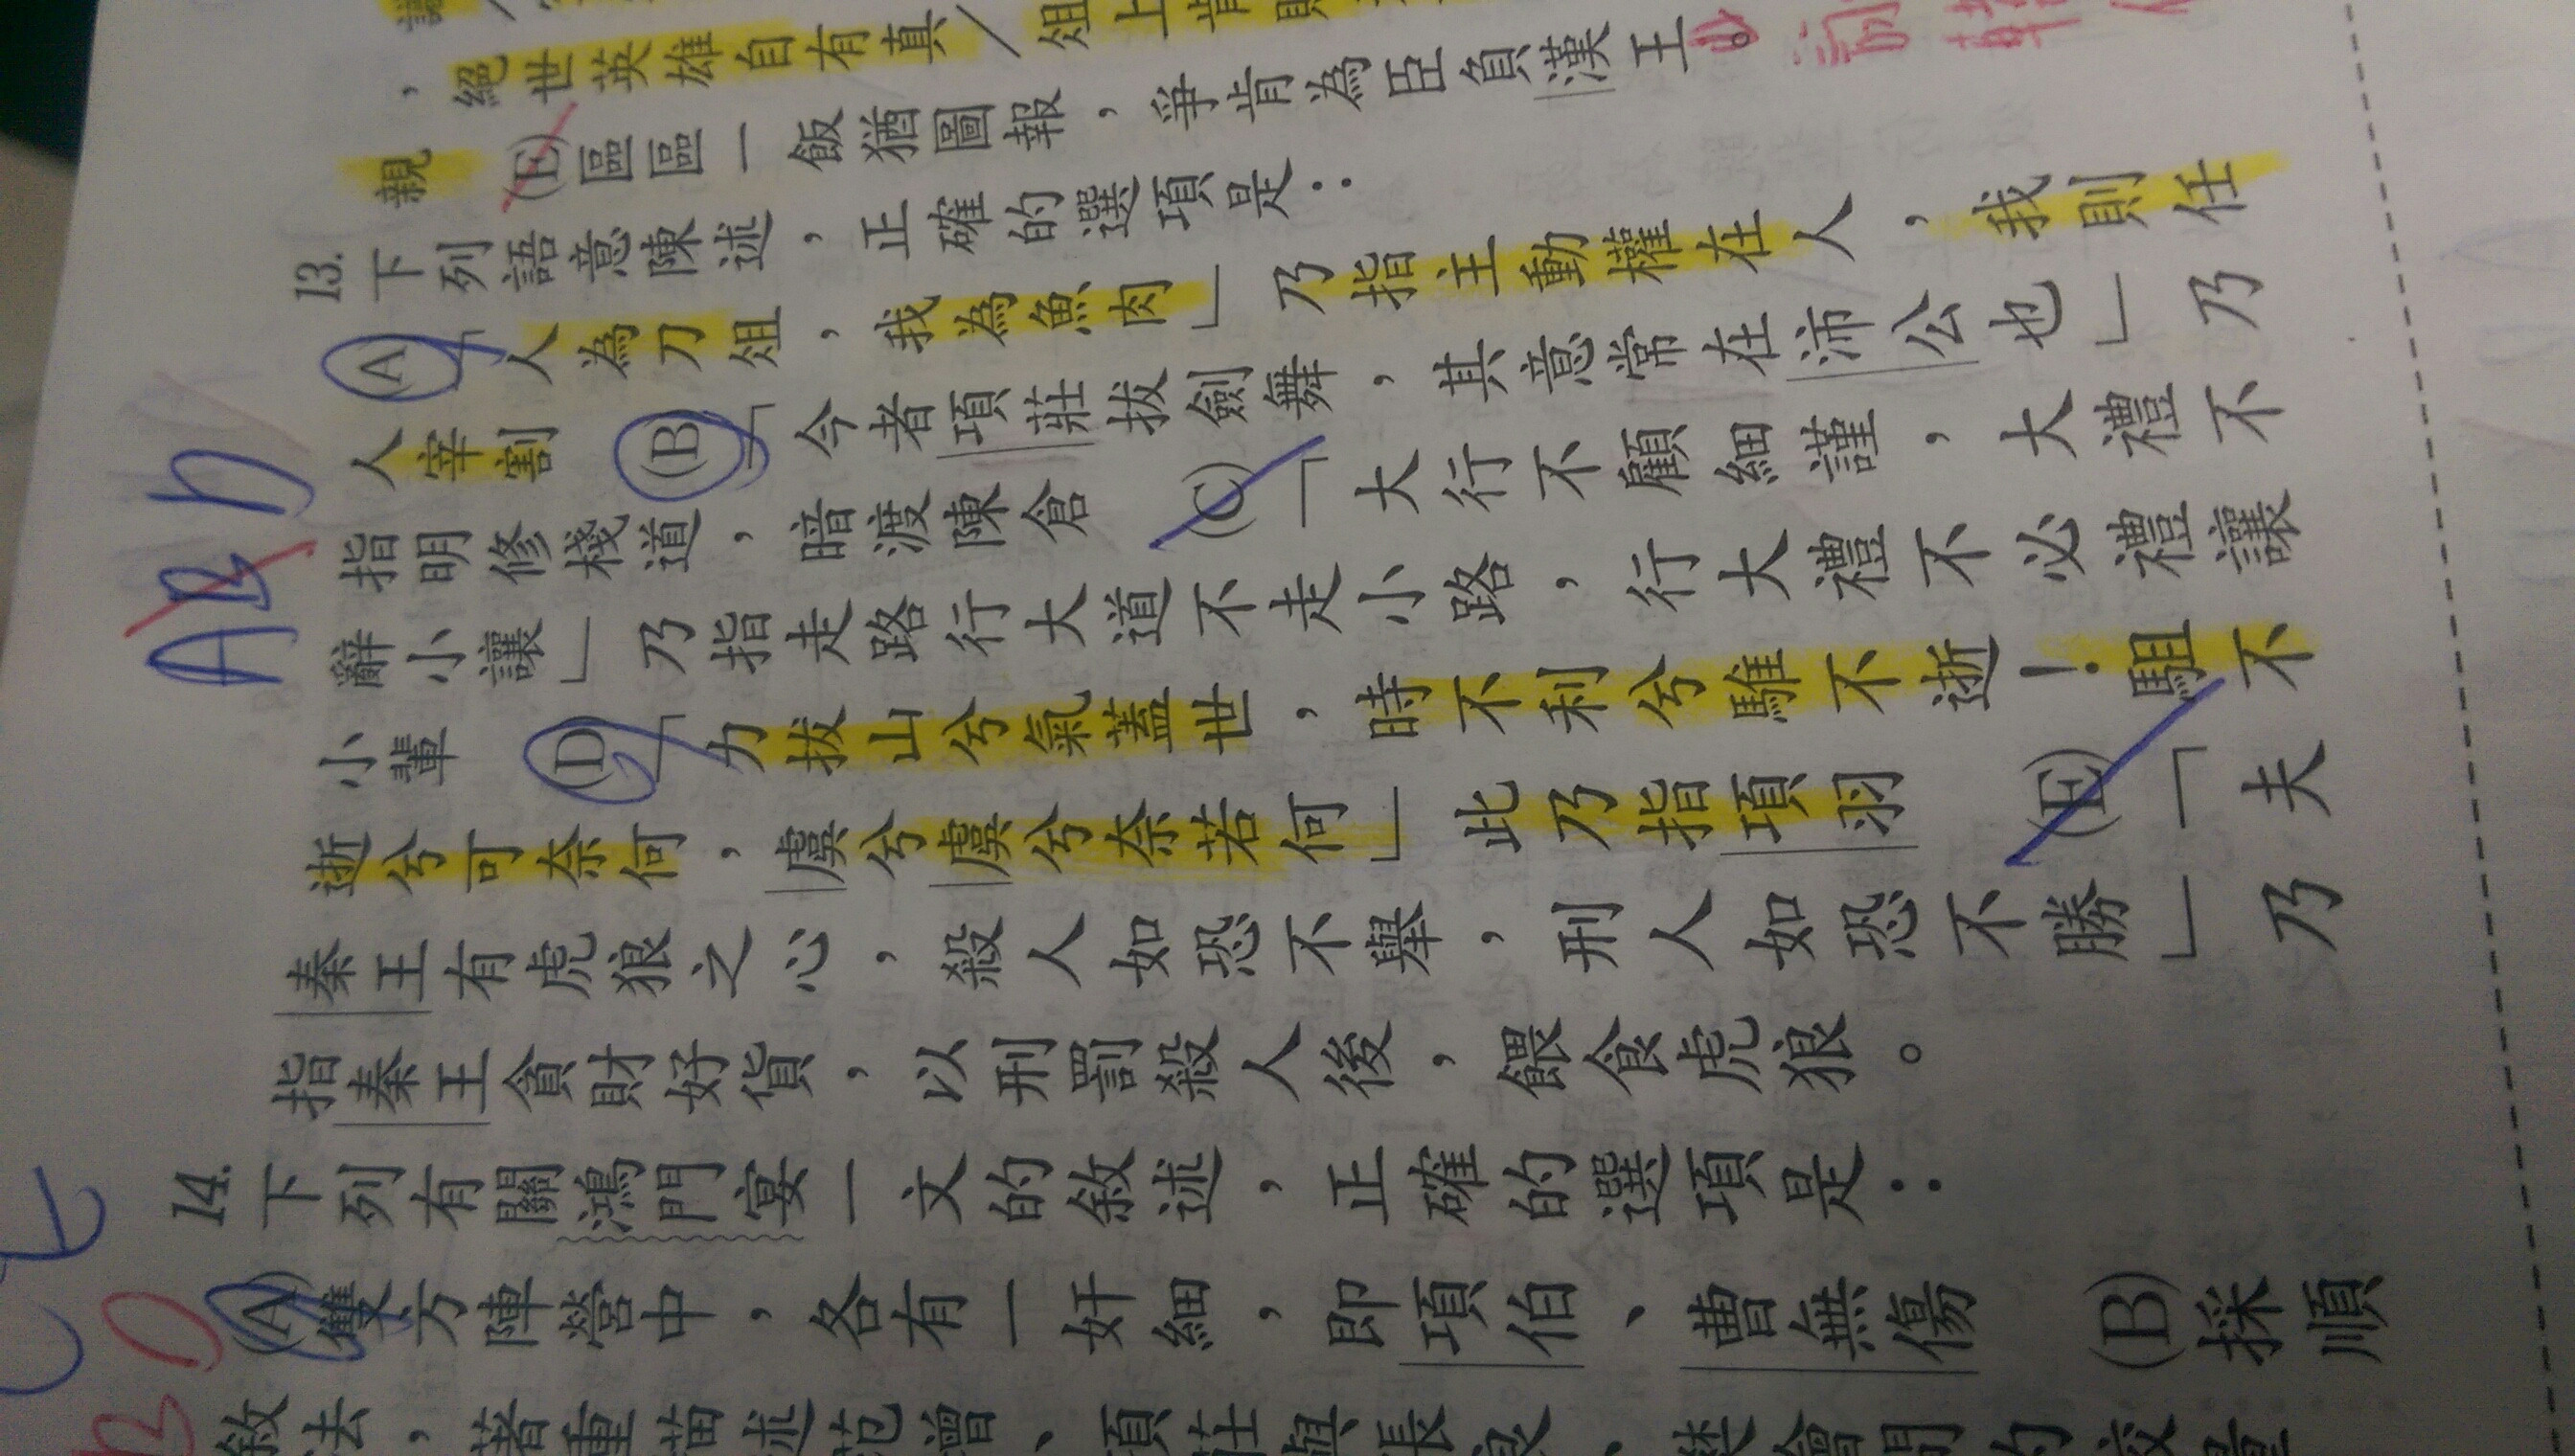 ，絕世英雄自有真／俎上肯
親 (E)區區一飯猶圖報，爭肯為臣負漢王。
13. 下列語意陳述，正確的選項是：
(A)「人為刀俎，我為魚肉」乃指主動權在人，我則任
人宰割 (B)「今者項莊拔劍舞，其意常在沛公也」乃
指明修棧道，暗渡陳倉 (C)「大行不顧細謹，大禮不
辭小讓」乃指走路行大道不走小路，行大禮不必禮讓
小輩 (D)「力拔山兮氣蓋世，時不利兮騅不逝！騅不
逝兮可奈何，虞兮虞兮奈若何」此乃指項羽 (E)「夫
秦王有虎狼之心，殺人如恐不舉，刑人如恐不勝」乃
指秦王貪財好貨，以刑罰殺人後，餵食虎狼。
ABD
14. 下列有關鴻門宴一文的敘述，正確的選項是：
(A)雙方陣營中，各有一奸細，即項伯、曹無傷 (B)採順
敘法，著重描述范增、項莊與張良、樊噲間的較量